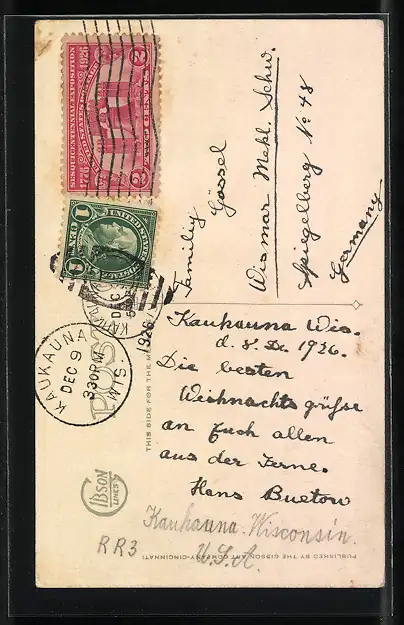 Familiy Gössel
Wismar Mekl. Schw.
Spiegelberg No 48
Germany
Kaukauna Wis.
d. 8. Dz. 1926.
Die besten
Weihnachts grüsse
an Euch allen
aus der Ferne.
Hans Buetow
Kaukauna. Wisconsin.
U.S.A.
RR3
KAUKAUNA
DEC 9
330PM
WIS
1926
UNITED STATES POSTAGE
1 CENT 1
1776 1926
SESQUICENTENNIAL EXPOSITION
2 2
POST
THIS SIDE FOR THE
GIBSON
LINES
PUBLISHED BY THE GIBSON ART COMPANY-CINCINNATI